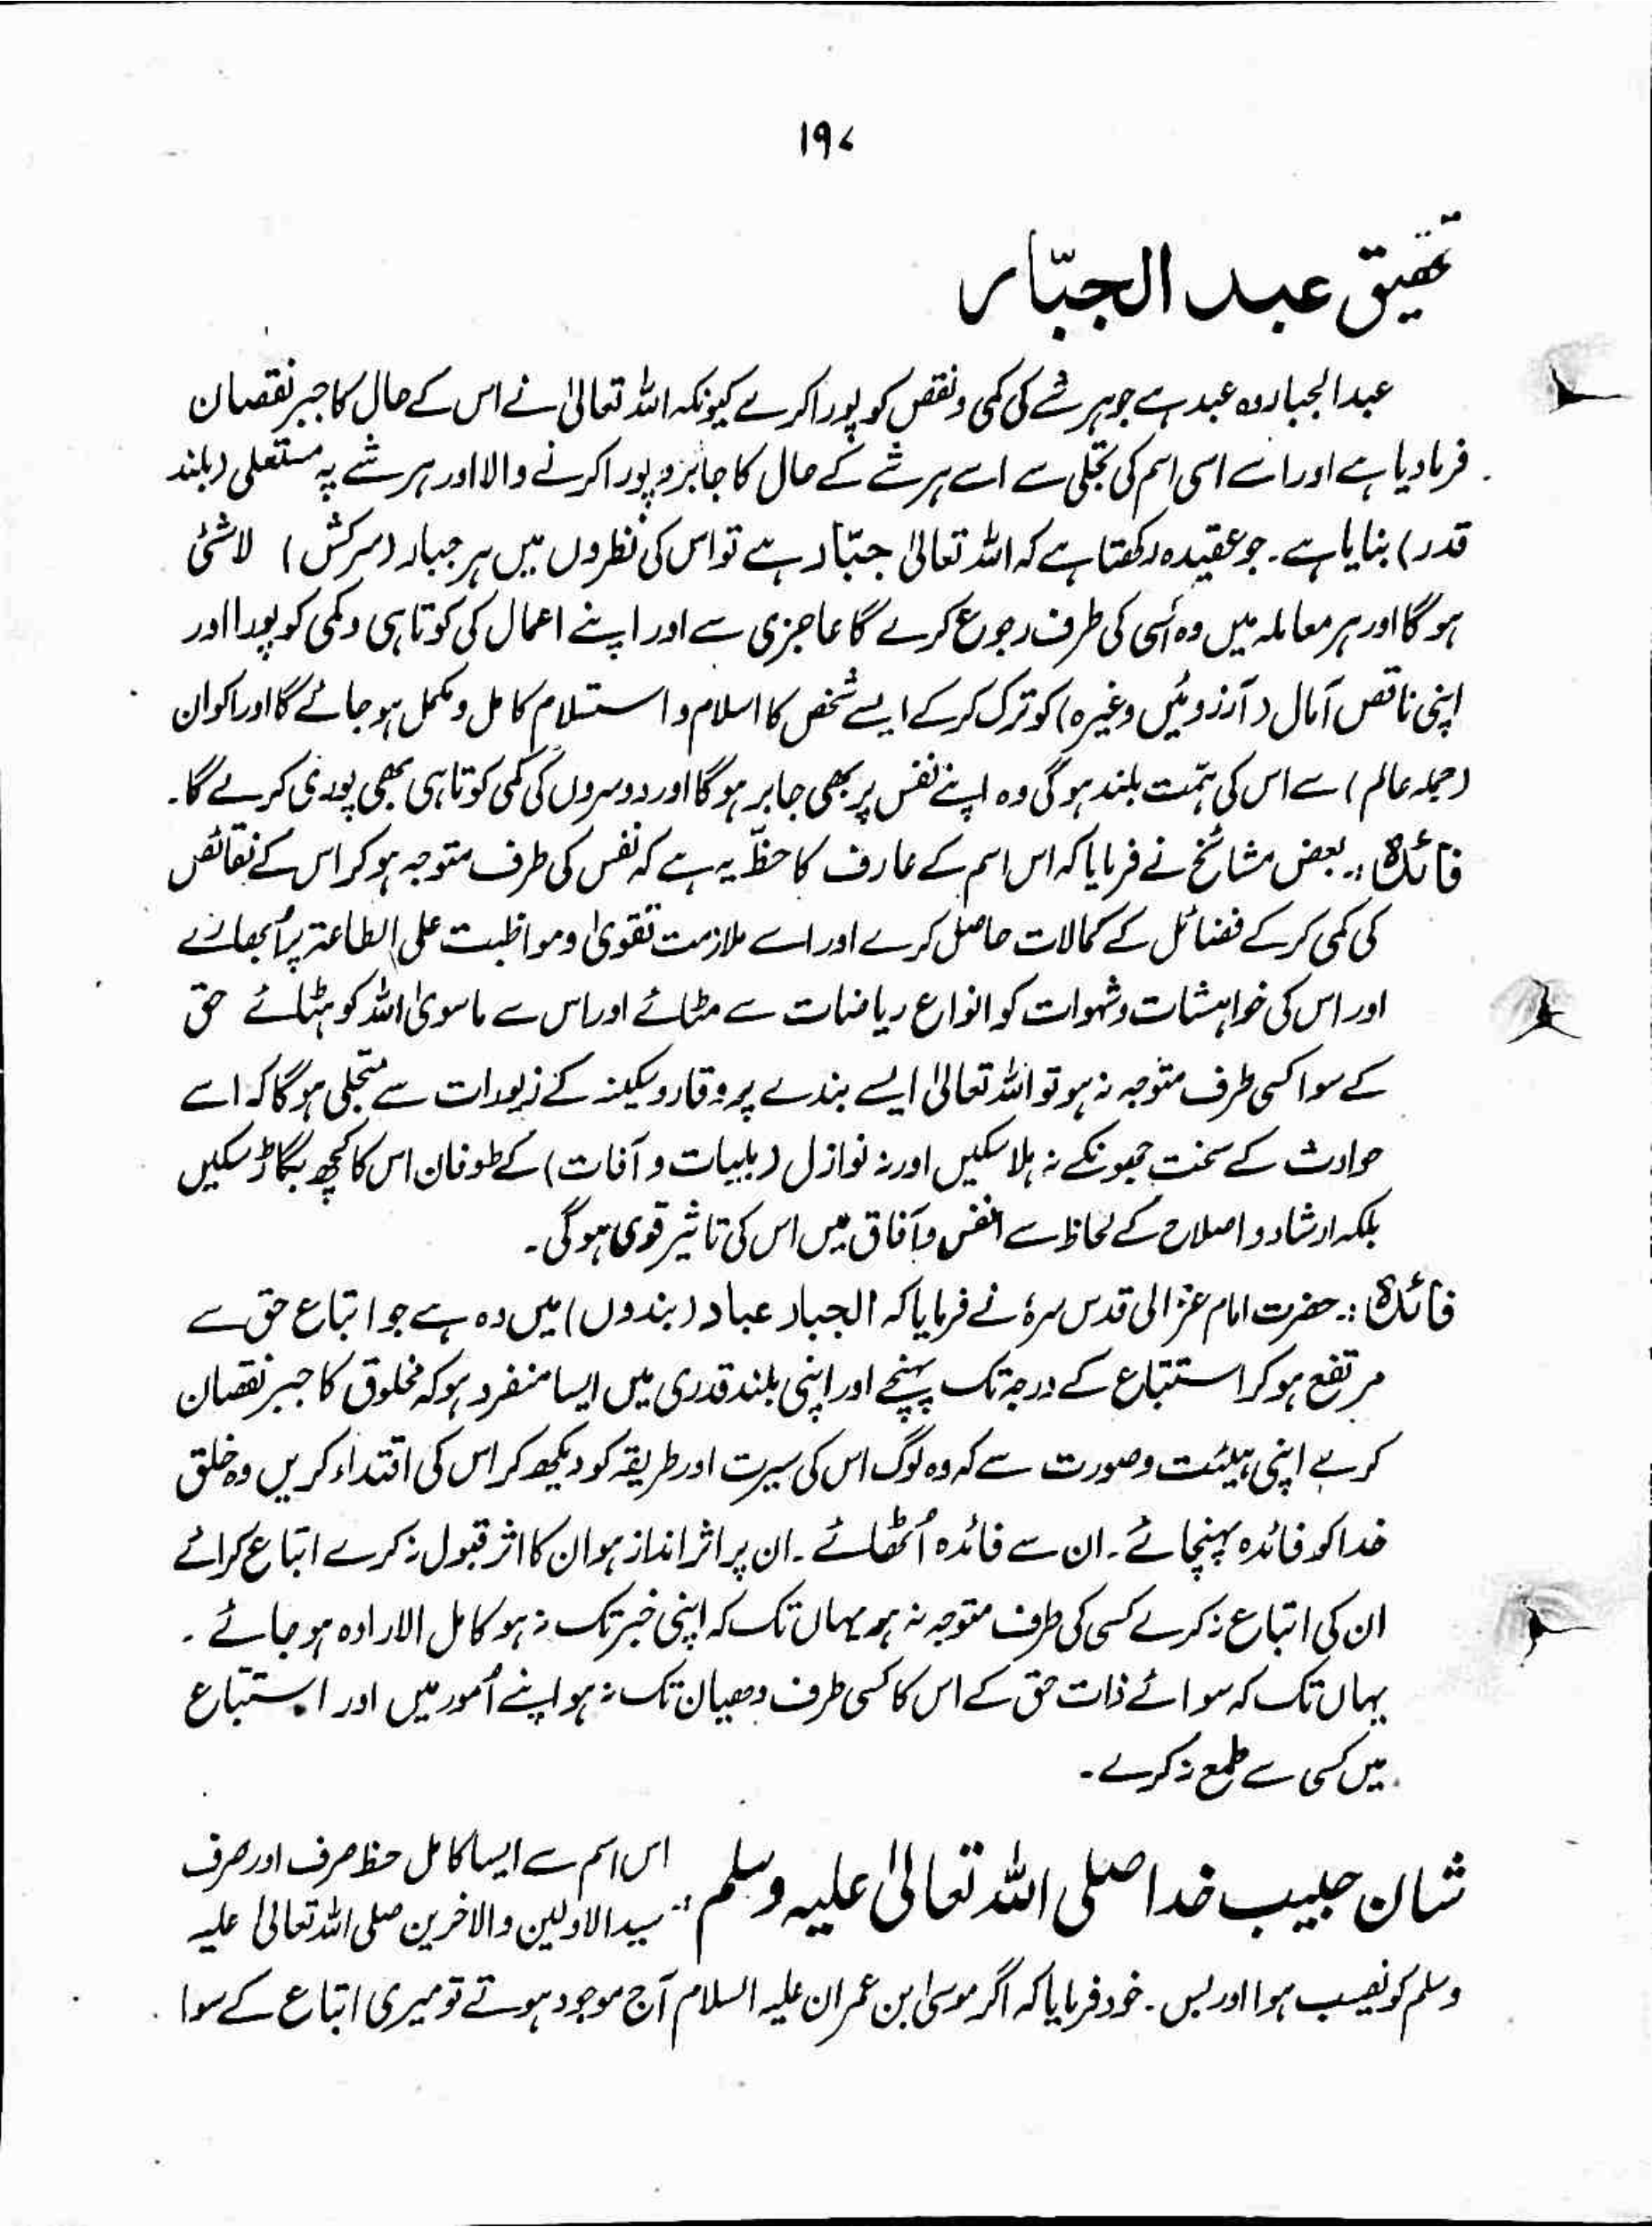 ۱۹۷
تحقیق عبد الجبّار
عبدالجبار وہ عبد ہے جو ہر شے کی کمی و نقص کو پورا کرے کیونکہ اللہ تعالیٰ نے اس کے حال کا جبر نقصان
فرما دیا ہے اور اسے اسی اسم کی تجلی سے اسے ہر شے کے حال کا جابر و پورا کرنے والا اور ہر شے پہ مستعلی (بلند
قدر) بنایا ہے۔ جو عقیدہ رکھتا ہے کہ اللہ تعالیٰ جبّار ہے تو اس کی نظروں میں ہر جبار (سرکش) لاشئ
ہو گا اور ہر معاملہ میں وہ اُسی کی طرف رجوع کرے گا عاجزی سے اور اپنے اعمال کی کوتاہی و کمی کو پورا اور
اپنی ناقص آمال (آرزوئیں وغیرہ) کو ترک کر کے ایسے شخص کا اسلام و استسلام کامل و مکمل ہو جائے گا اور اکوان
(جملہ عالم) سے اس کی ہمّت بلند ہو گی وہ اپنے نفس پر بھی جابر ہو گا اور دوسروں کی کمی کوتاہی بھی پوری کرے گا۔
فائدہ :۔ بعض مشائخ نے فرمایا کہ اس اسم کے عارف کا حظّ یہ ہے کہ نفس کی طرف متوجہ ہو کر اس کے نقائص
کی کمی کر کے فضائل کے کمالات حاصل کرے اور اسے ملازمت تقویٰ و مواظبت علی الطاعتہ پر اُبھارے
اور اس کی خواہشات و شہوات کو انواع ریاضات سے مٹائے اور اس سے ماسویٰ اللہ کو ہٹائے حق
کے سوا کسی طرف متوجہ نہ ہو تو اللہ تعالیٰ ایسے بندے پر وقار و سکینہ کے زیورات سے متجلی ہو گا کہ اسے
حوادث کے سخت جھونکے نہ ہلا سکیں اور نہ نوازل (بلیات و آفات) کے طوفان اس کا کچھ بگاڑ سکیں
بلکہ ارشاد و اصلاح کے لحاظ سے انفس و آفاق میں اس کی تاثیر قوی ہو گی۔
فائدہ :۔ حضرت امام غزالی قدس سرہٗ نے فرمایا کہ الجبار عباد (بندوں) میں وہ ہے جو اتباع حق سے
مرتفع ہو کر استتباع کے درجہ تک پہنچے اور اپنی بلند قدری میں ایسا منفرد ہو کہ مخلوق کا جبر نقصان
کرے اپنی ہیئت و صورت سے کہ وہ لوگ اس کی سیرت اور طریقہ کو دیکھ کر اس کی اقتداء کریں وہ خلق
خدا کو فائدہ پہنچائے۔ ان سے فائدہ اُٹھائے۔ ان پر اثر انداز ہو ان کا اثر قبول نہ کرے اتباع کرائے
ان کی اتباع نہ کرے کسی کی طرف متوجہ نہ ہو یہاں تک کہ اپنی خبر تک نہ ہو کامل الارادہ ہو جائے۔
یہاں تک کہ سوائے ذات حق کے اس کا کسی طرف دھیان تک نہ ہو اپنے اُمور میں اور استتباع
میں کسی سے طمع نہ کرے۔
شان حبیب خدا صلی اللہ تعالیٰ علیہ وسلم :۔ اس اسم سے ایسا کامل حظ صرف اور صرف
سید الاولین والاخرین صلی اللہ تعالیٰ علیہ
وسلم کو نصیب ہوا اور بس۔ خود فرمایا کہ اگر موسیٰ ابن عمران علیہ السلام آج موجود ہوتے تو میری اتباع کے سوا